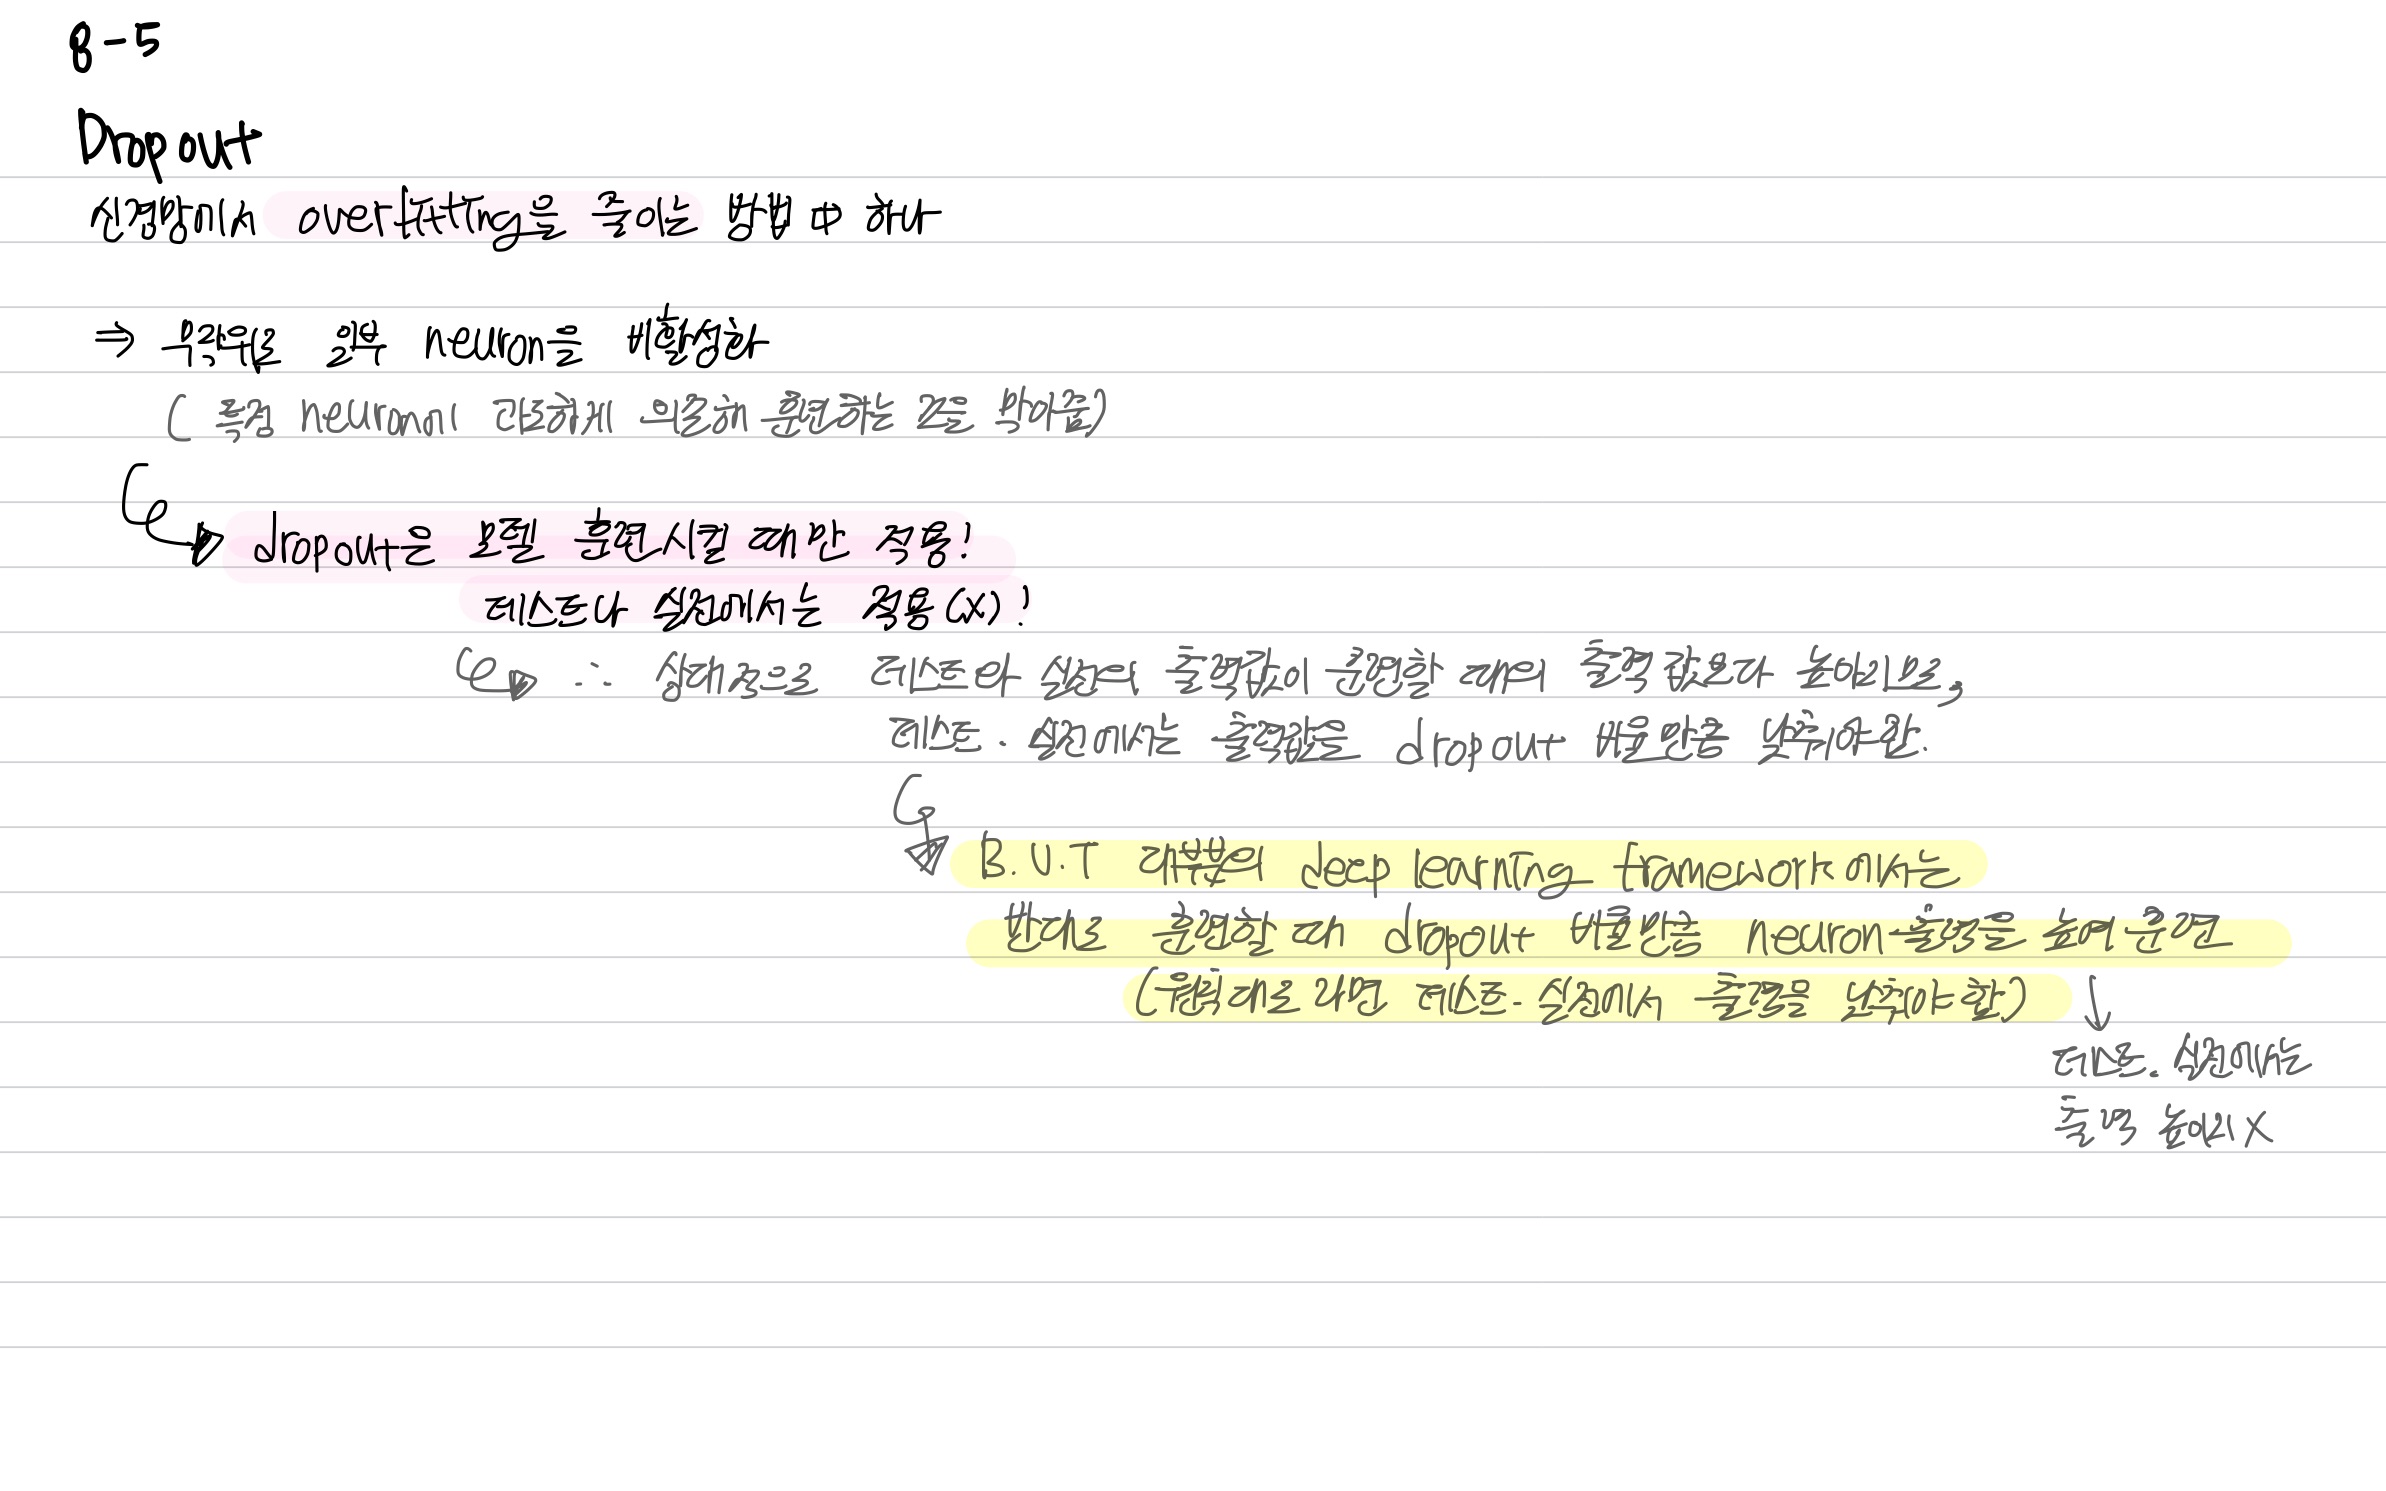 8-5
Dropout
신경망에서 overfitting을 줄이는 방법 中 하나
⇒ 무작위로 일부 neuron을 비활성화
( 특정 neuron에 과도하게 의존해 훈련하는 것을 막아줌)
dropout은 모델 훈련시킬 때만 적용!
테스트나 실전에서는 적용(X)!
∴ 상대적으로 테스트와 실전의 출력값이 훈련할 때의 출력값보다 높아지므로,
테스트·실전에서는 출력값을 dropout 비율만큼 낮춰야함.
B.U.T 대부분의 deep learning framework에서는
반대로 훈련할 때 dropout 비율만큼 neuron 출력을 높여 훈련
(원칙대로라면 테스트·실전에서 출력을 낮춰야 함)
↓
테스트·실전에서는
출력 높아지X